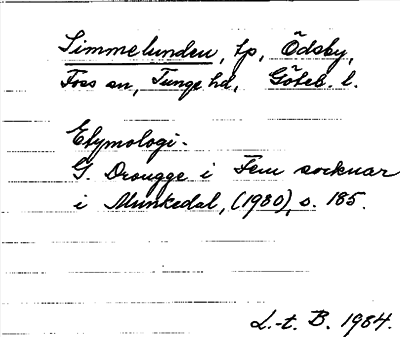 Simmelunden, tp, Ödsby,
Foss sn, Tunge hd, Göteb. l.
Etymologi.
G. Drougge i Fem socknar
i Munkedal, (1980), s. 185.
L.-t. B. 1984.